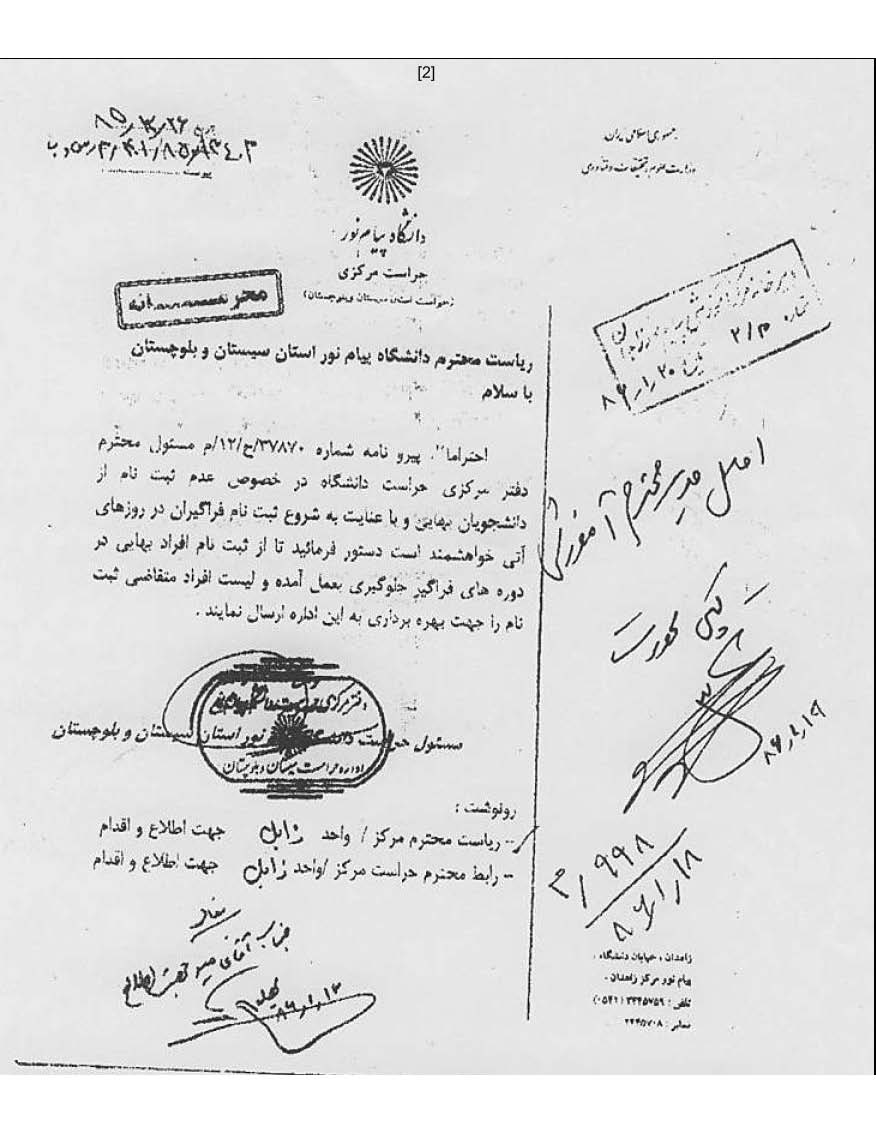 [2]
جمهوری اسلامی ایران
وزارت علوم، تحقیقات و فناوری
۸۵/۳/۲۶
پیوست
دانشگاه پیام نور
حراست مرکزی
(حراست استان سیستان وبلوچستان)
محرمانه
ریاست محترم دانشگاه پیام نور استان سیستان و بلوچستان
با سلام
احتراما"، پیرو نامه شماره ۳۷۸۷۰/ح/۱۲/م مسئول محترم
دفتر مرکزی حراست دانشگاه در خصوص عدم ثبت نام از
دانشجویان بهایی و با عنایت به شروع ثبت نام فراگیران در روزهای
آتی خواهشمند است دستور فرمائید تا از ثبت نام افراد بهایی در
دوره های فراگیر جلوگیری بعمل آمده و لیست افراد متقاضی ثبت
نام را جهت بهره برداری به این اداره ارسال نمایند .
مسئول حراست دانشگاه پیام نور استان سیستان و بلوچستان
دفتر مرکزی حراست دانشگاه پیام نور
اداره حراست سیستان و بلوچستان
رونوشت :
-- ریاست محترم مرکز / واحد زابل جهت اطلاع و اقدام
- رابط محترم حراست مرکز /واحد زابل جهت اطلاع و اقدام
جناب آقای
۸۶/۱/۲۰
مدیر محترم آموزش
۸۶/۱/۱۹
۹۹۸/م
۸۶/۱/۱۸
زاهدان ، خیابان دانشگاه ،
پیام نور مرکز زاهدان .
تلفن : ۲۴۴۵۷۵۹ (۰۵۴۱)
نمابر : ۲۴۴۵۷۰۸